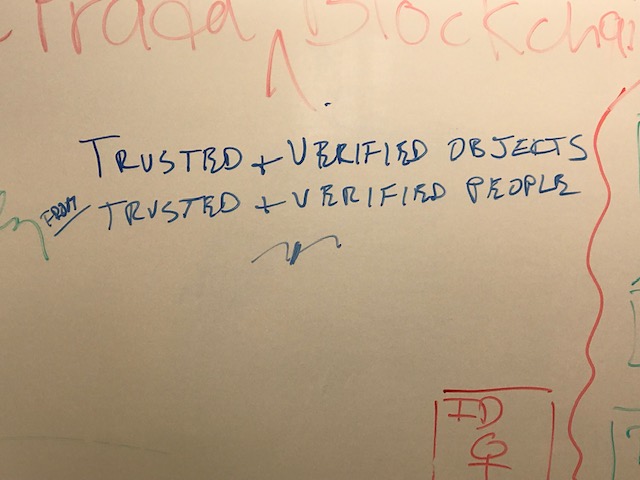 Blockchai
TRUSTED + VERIFIED OBJECTS
FROM TRUSTED + VERIFIED PEOPLE
ID